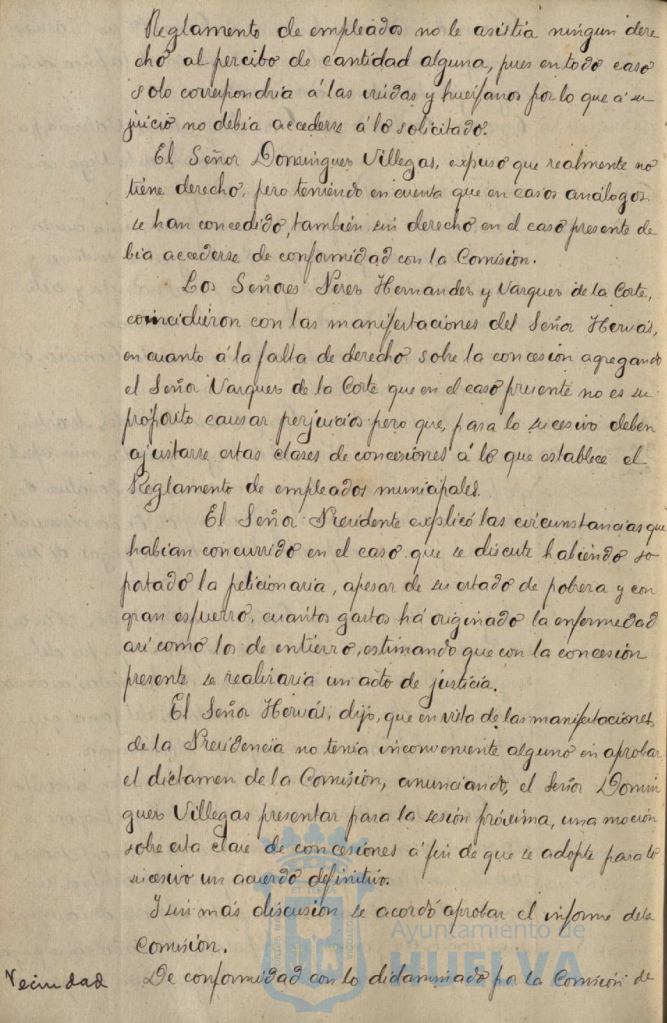 Reglamento de empleados no le asistia ningun dere
cho al percibo de cantidad alguna, pues en todo caso
solo correspondria á las viudas y huerfanos por lo que á su
juicio no debia accederse á lo solicitado.
El Señor Dominguez Villegas, expuso que realmente no
tiene derecho, pero teniendo en cuenta que en casos análogos
se han concedido, también sin derecho en el caso presente de
bia accederse de conformidad con la Comision.
Los Señores Perez Hernandez y Vazquez de la Corte,
coincidieron con las manifestaciones del Señor Hervás,
en cuanto á la falta de derecho sobre la concesion agregando
el Señor Vazquez de la Corte que en el caso presente no es su
propósito causar perjuicios pero que, para lo sucesivo deben
ajustarse estas clases de concesiones á lo que establece el
Reglamento de empleados municipales.
El Señor Presidente explicó las circunstancias que
habian concurrido en el caso que se discute habiendo so
portado la peticionaria, apesar de su estado de pobreza y con
gran esfuerzo, cuantos gastos há originado la enfermedad
asi como los de entierro, estimando que con la concesion
presente se realizaria un acto de justicia.
El Señor Hervás, dijo, que en vista de las manifestaciones
de la Presidencia no tenia inconveniente alguno en aprobar
el dictamen de la Comision, anunciando, el Señor Domin
guez Villegas presentar para la sesión próxima, una moción
sobre esta clase de concesiones á fin de que se adopte para lo
sucesivo un acuerdo definitivo.
Y sin más discusion se acordó aprobar el informe de la
Comision.
Vecindad De conformidad con lo dictaminado por la Comisión de
Ayuntamiento de
HUELVA